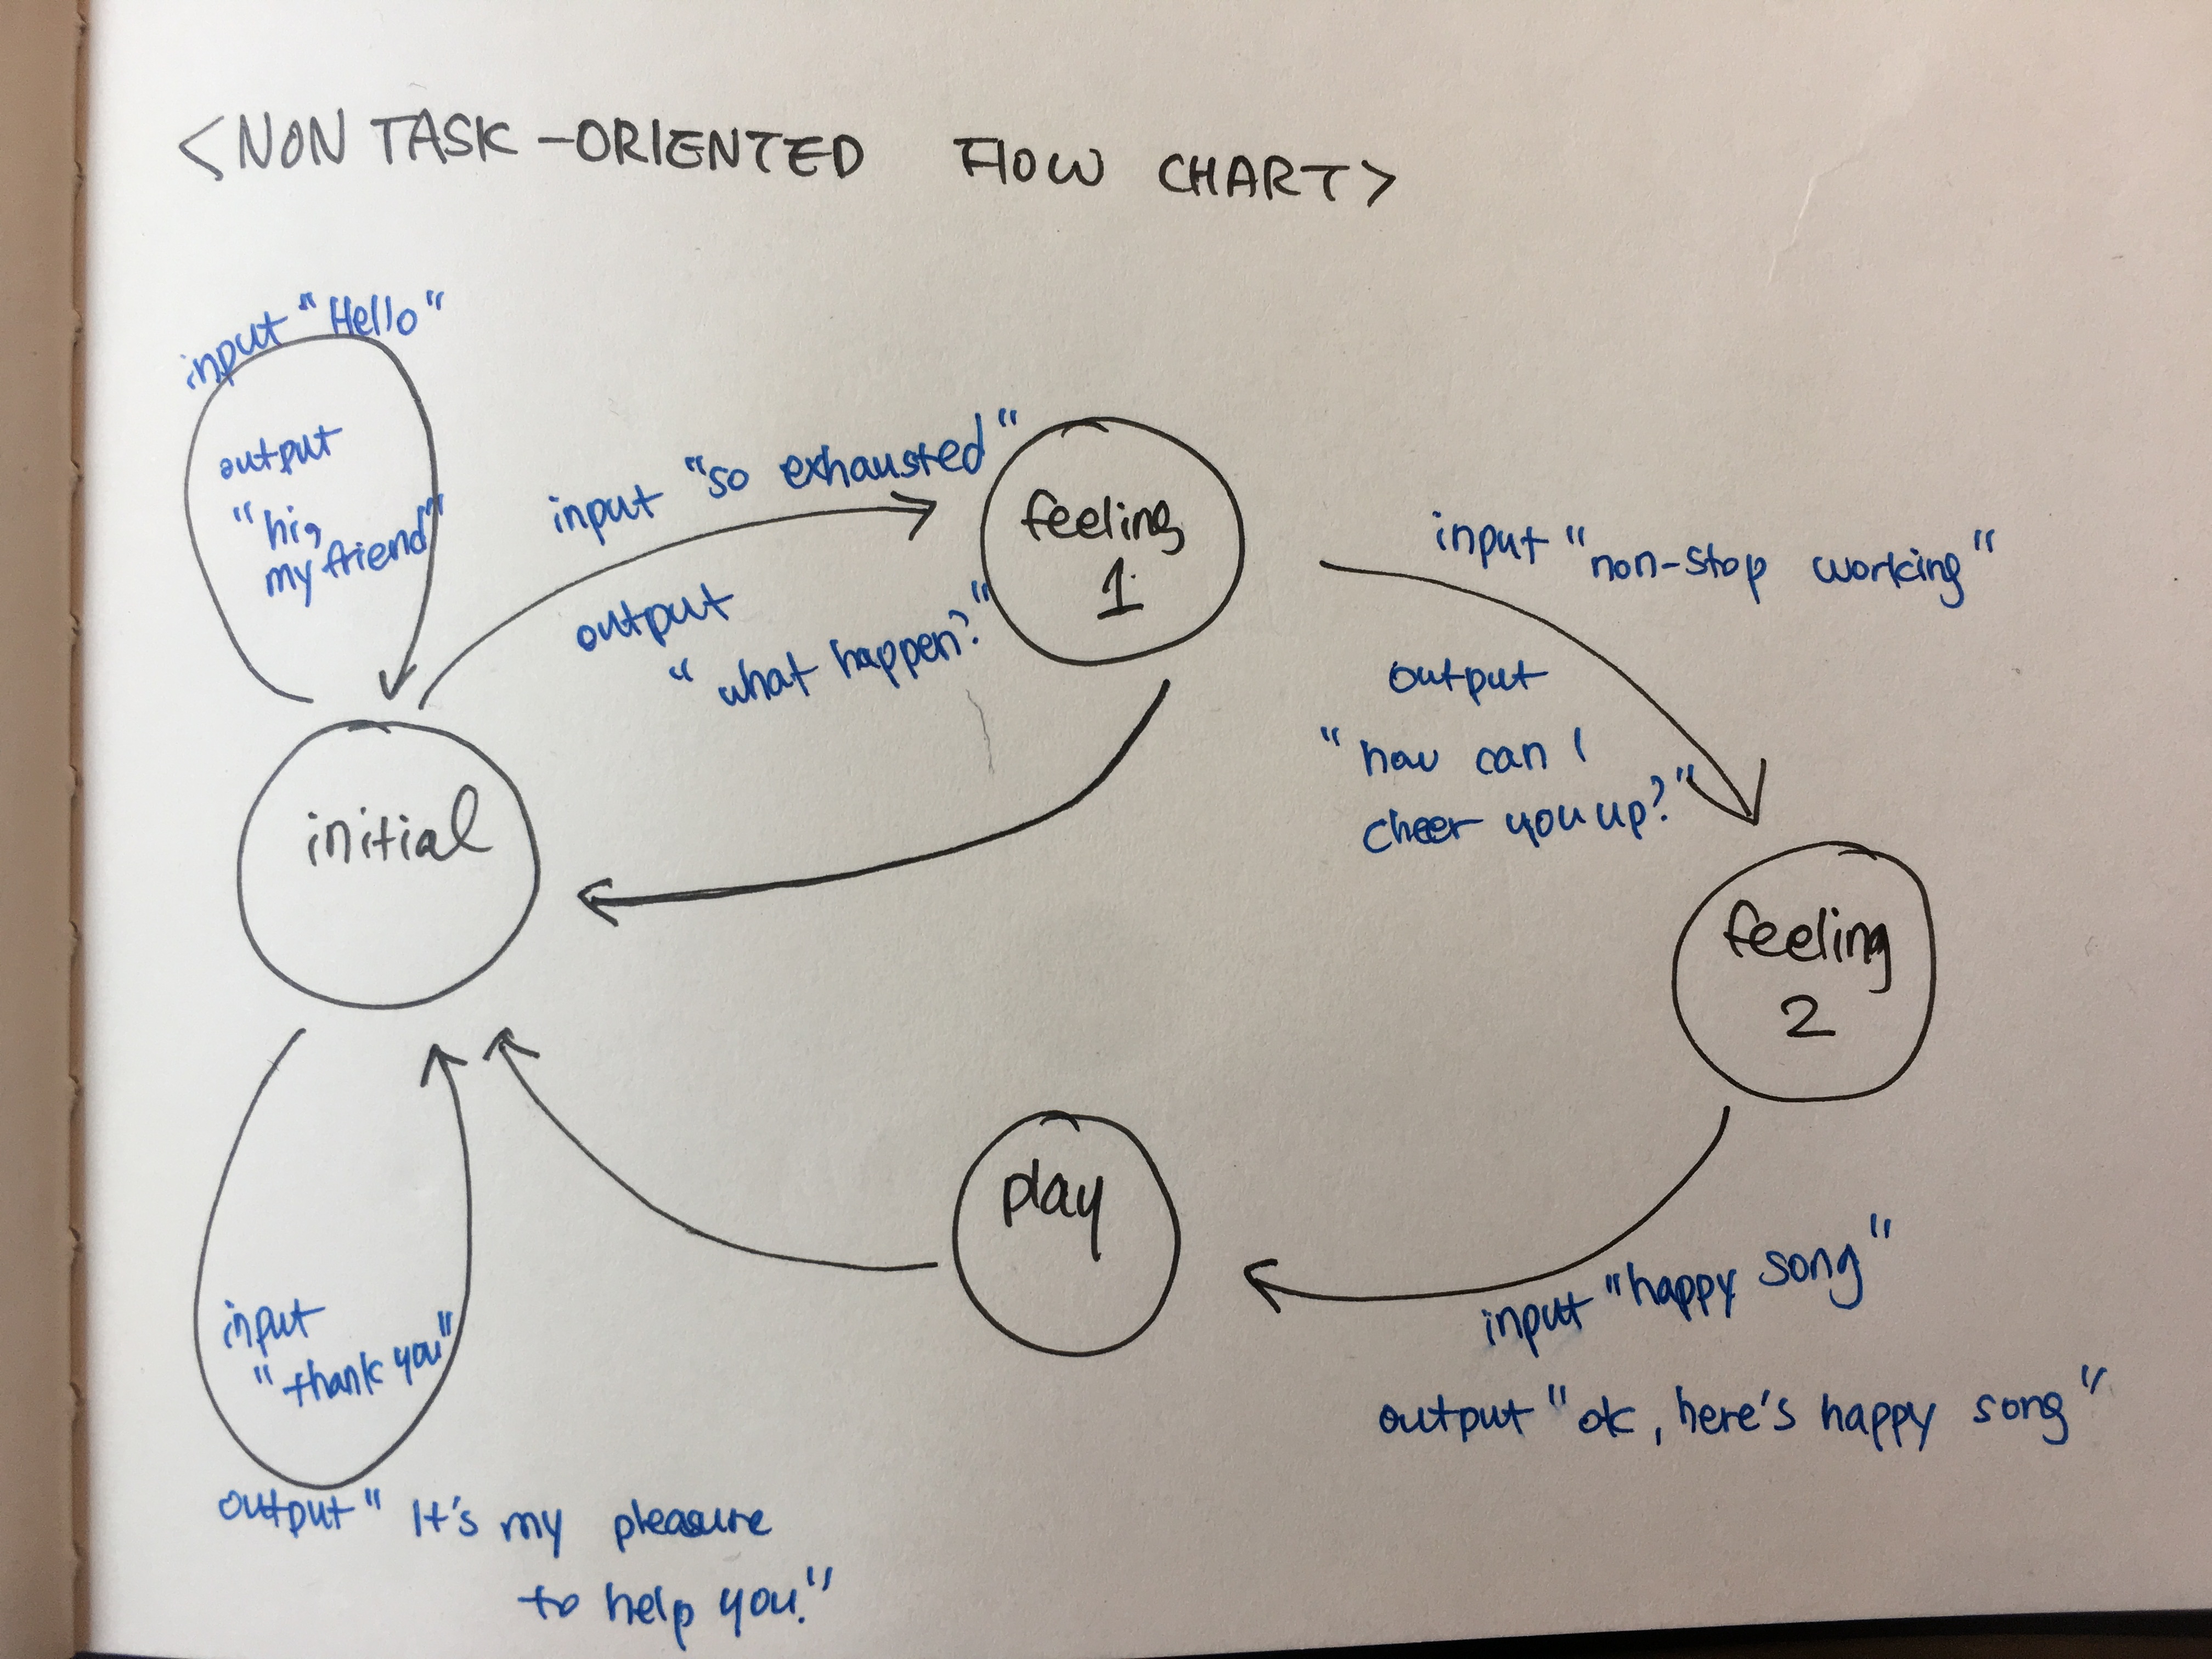 <NON TASK-ORIENTED FLOW CHART>
input "Hello"
output
"hi,
my friend"
input "so exhausted"
output
"what happen?"
feeling
1
input "non-stop working"
output
"how can I
cheer you up?"
initial
feeling
2
play
input "happy song"
output "ok, here's happy song"
input
"thank you"
output "It's my pleasure
to help you."